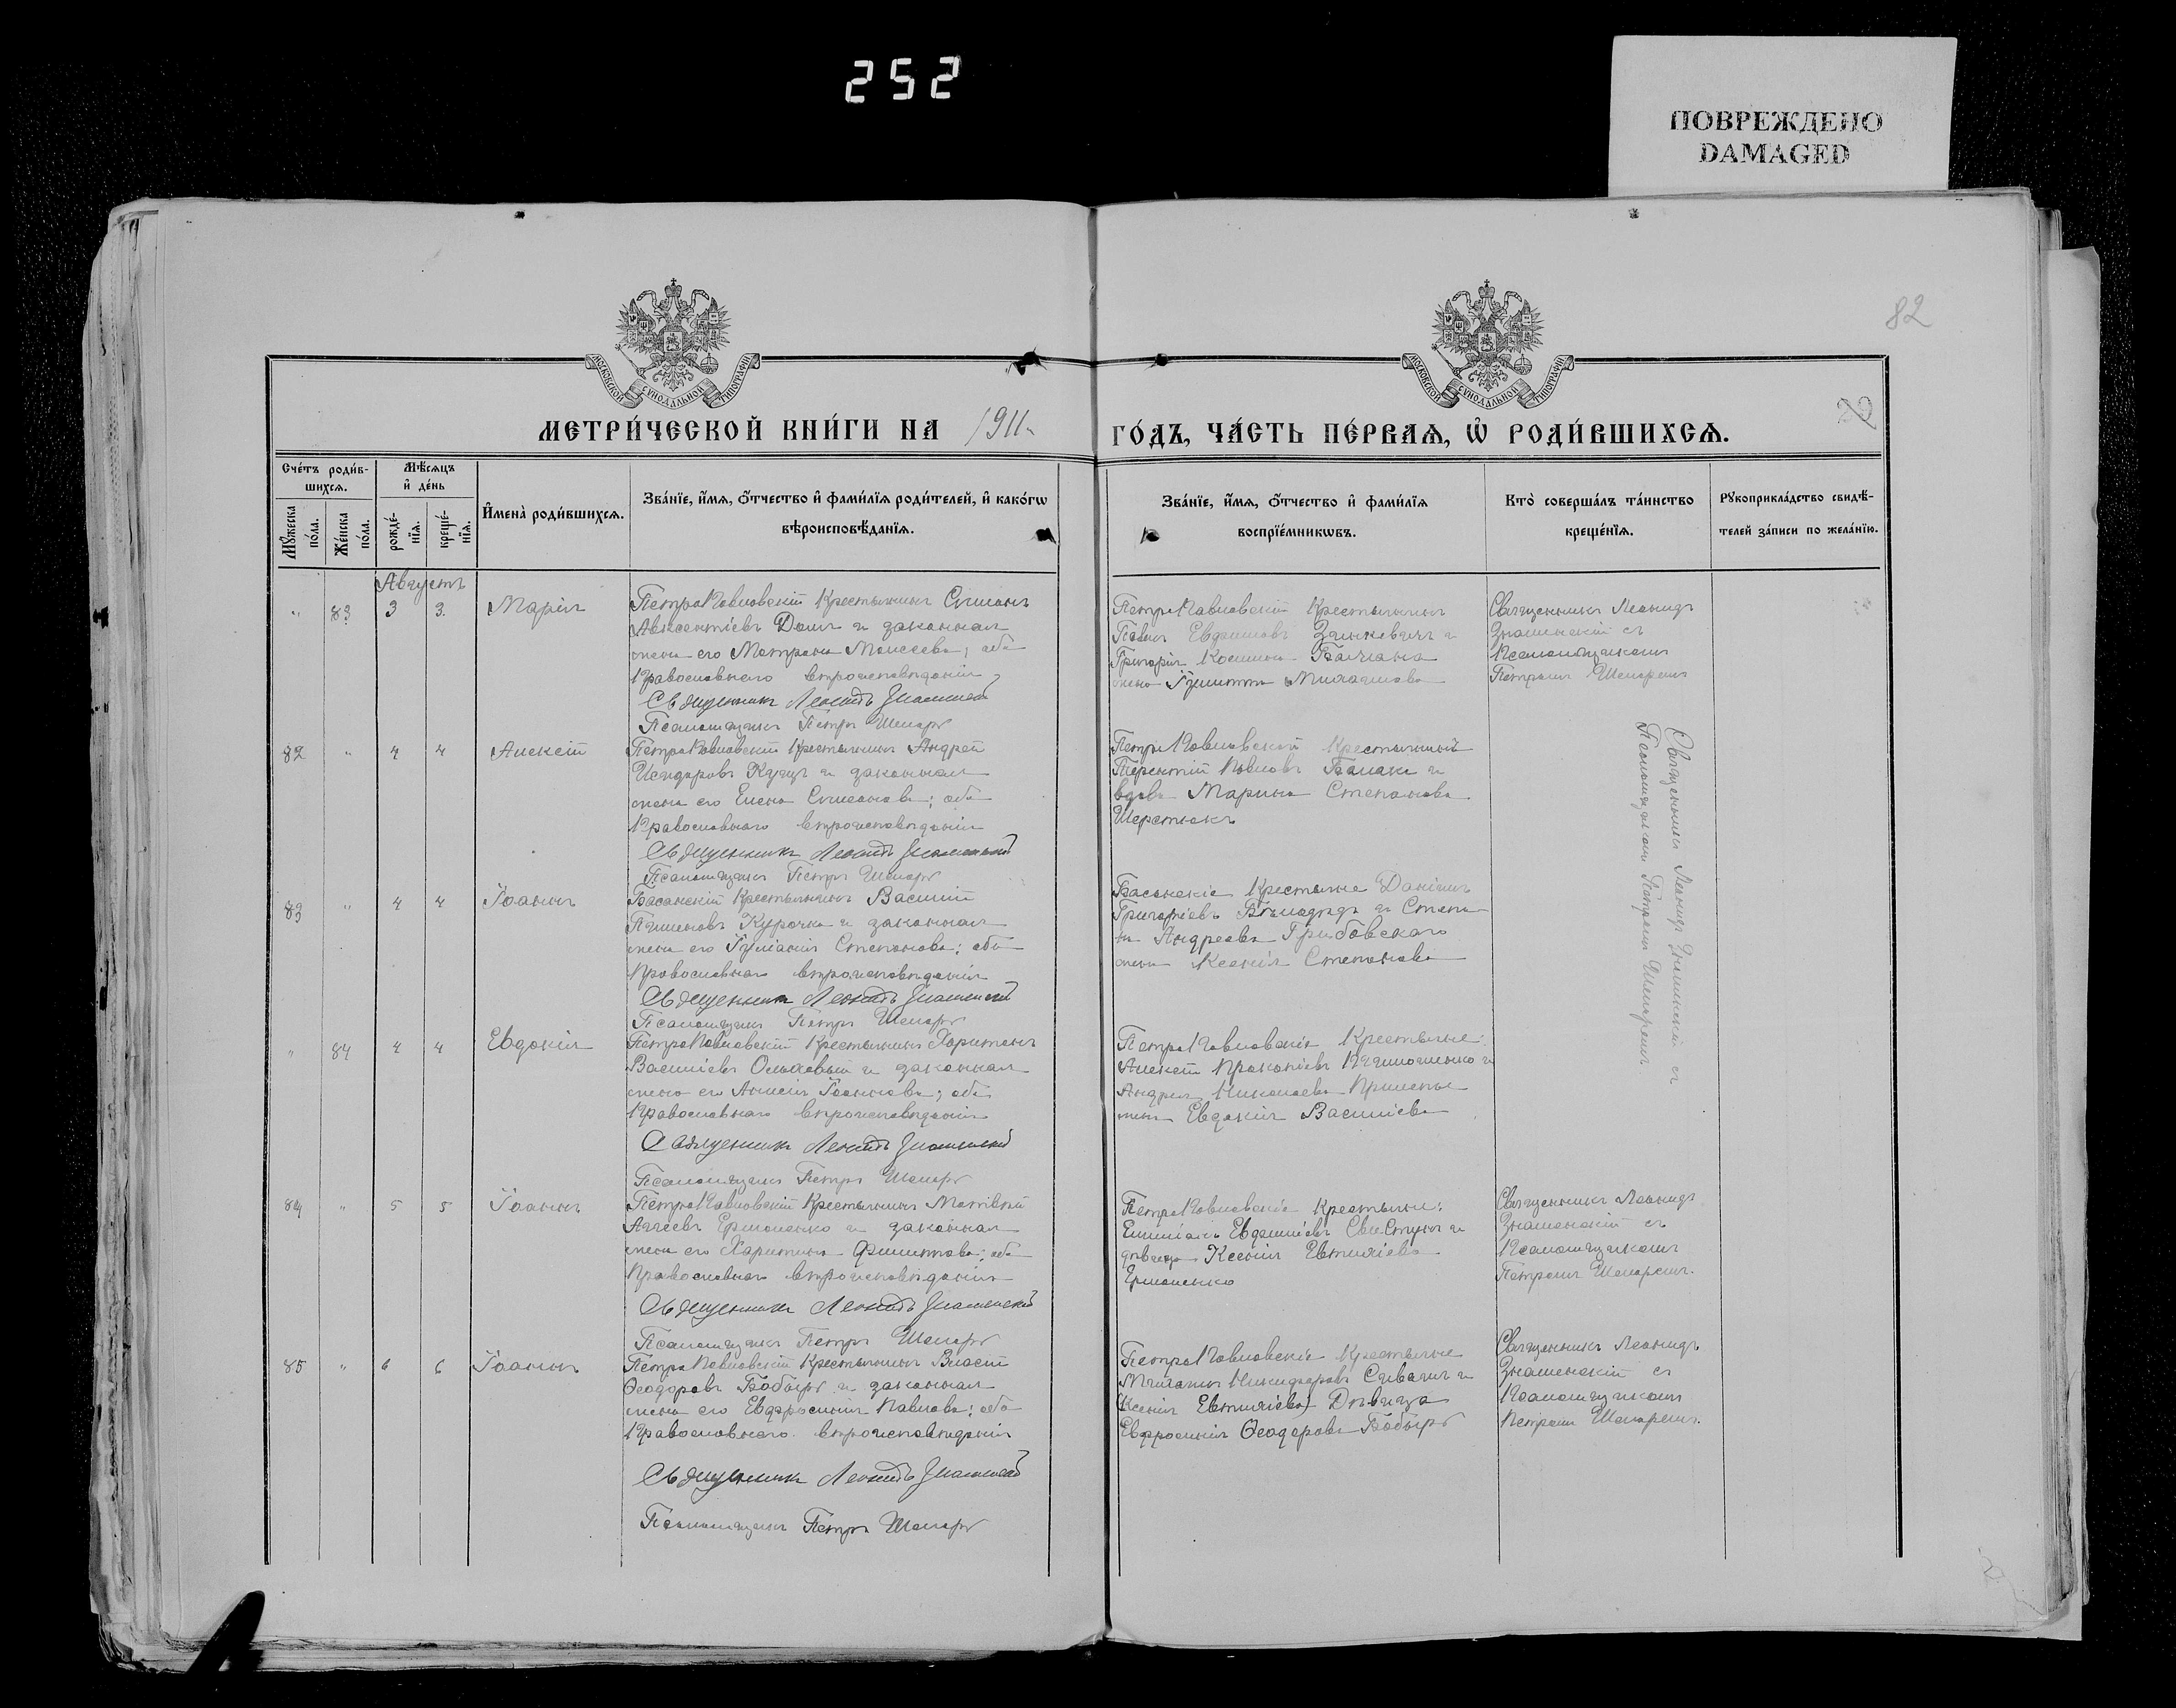 252
ПОВРЕЖДЕНО
DAMAGED
82
МОСКОВСКОЙ СѴНОДАЛЬНОЙ ТИПОГРАФІИ
МОСКОВСКОЙ СѴНОДАЛЬНОЙ ТИПОГРАФІИ
МЕТРИ́ЧЕСКОЙ КНИ́ГИ НА 1911
ГО́ДЪ, ЧА́СТЬ ПЕ́РВАѦ, Ѡ҆ РОДИ́ВШИХСѦ.
Сче́тъ роди́в-
шихсѧ.
Мꙋ́жеска по́ла.
Же́нска по́ла.
Мѣ́сѧцъ
и҆ де́нь
рожде́-
нїѧ.
креще́-
нїѧ.
И҆мена̀ роди́вшихсѧ.
Зва́нїе, и҆́мѧ, ѻ҆́тчество и҆ фами́лїѧ роди́телей, и҆ како́гѡ
вѣроисповѣ́данїѧ.
Зва́нїе, и҆́мѧ, ѻ҆́тчество и҆ фами́лїѧ
воспрїе́мникѡвъ.
Кто̀ соверша́лъ та́инство
креще́нїѧ.
Рꙋкоприкла́дство свидѣ́-
телей за́писи по жела́нїю.
Августъ
" 83 3 3. Марія
ПетроПавловскій Крестьянинъ Симеонъ
Авксентіевъ Доля и законная
жена его Матрона Моисеева; оба
Православнаго вѣроисповѣданія
Священникъ Леонидъ Знаменскій
Псаломщикъ Петръ Шемарь
ПетроПавловскій Крестьянинъ
Павелъ Евфимовъ и
Григорія Космина
жена Михаилова
Священникъ Леонидъ
Знаменскій съ
Псаломщикомъ
Петромъ Шемаремъ
82 " 4 4 Алексій
ПетроПавловскій Крестьянинъ Андрей
Исидоровъ Куцъ и законная
жена его Елена Симеонова; оба
Православнаго вѣроисповѣданія
Священникъ Леонидъ Знаменскій
Псаломщикъ Петръ Шемарь
ПетроПавловскій Крестьянинъ
Терентій Павловъ и
вдова Марина Степанова
Шерстюкъ
83 " 4 4 Іоаннъ
Басанскій Крестьянинъ Василій
Пименовъ Курочка и законная
жена его Іуліанія Степанова; оба
Православнаго вѣроисповѣданія
Священникъ Леонидъ Знаменскій
Псаломщикъ Петръ Шемарь
Басанскіе Крестьяне Даніилъ
Григоріевъ Бѣлодѣдъ и Степа-
на Андреева Грибовскаго
жена Ксенія Степанова
Священникъ Леонидъ Знаменскій съ
Псаломщикомъ Петромъ Шемаремъ
" 84 4 4 Евдокія
ПетроПавловскій Крестьянинъ Харитонъ
Василіевъ Ольховый и законная
жена его Анисія Іоаннова; оба
Православнаго вѣроисповѣданія
Священникъ Леонидъ Знаменскій
Псаломщикъ Петръ Шемарь
ПетроПавловскіе Крестьяне:
Алексій Прокопіевъ и
Андрея Николаева
жена Евдокія Василіева
84 " 5 5 Іоаннъ
ПетроПавловскій Крестьянинъ Матѳій
Ермоленко и законная
жена его Харитина Филиппова; оба
Православнаго вѣроисповѣданія
Священникъ Леонидъ Знаменскій
Псаломщикъ Петръ Шемарь
ПетроПавловскіе Крестьяне:
Емиліанъ Евфиміевъ и
дѣвица Ксенія Евтихіева
Ермоленко
Священникъ Леонидъ
Знаменскій съ
Псаломщикомъ
Петромъ Шемаремъ.
85 " 6 6 Іоаннъ
ПетроПавловскій Крестьянинъ Власій
Ѳеодоровъ Бобырь и законная
жена его Евфросинія Павлова; оба
Православнаго вѣроисповѣданія
Священникъ Леонидъ Знаменскій
Псаломщикъ Петръ Шемарь
ПетроПавловскіе Крестьяне
Михаилъ Никифоровъ и
(Ксенія Евтихіева) Дѣвица
Евфросинія Ѳеодорова Бобырь
Священникъ Леонидъ
Знаменскій съ
Псаломщикомъ
Петромъ Шемаремъ.